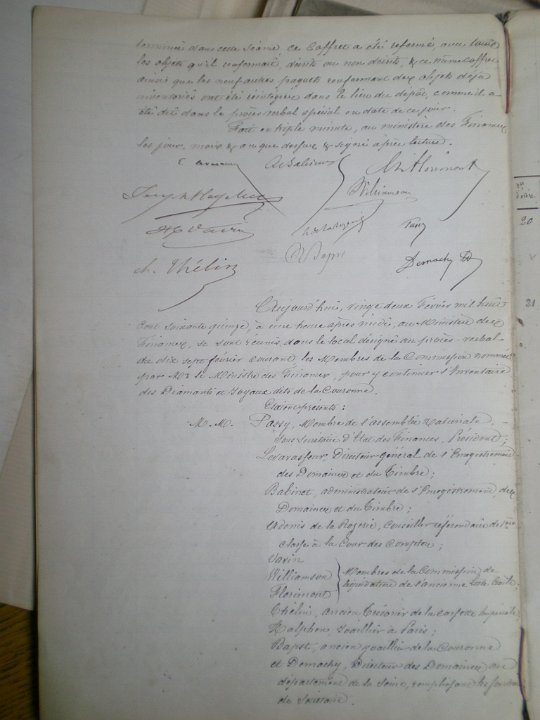 terminés dans cette séance, ce coffret a été refermé, avec tous
les objets qu'il renfermait, décrits ou non décrits, & ce même coffret
ainsi que les neuf autres paquets renfermant des objets déjà
inventoriés ont été réintégrés dans le lieu du dépôt, comme il a
été dit dans le procès verbal spécial en date de ce jour.
Fait en triple minute, au ministère des Finances
les jour, mois & an que dessus & signé après lecture.
Ch. Florimont
Williamson
Ch. Thélin
Bapst
Passy
Demachy
Aujourd'hui, vingt deux Février mil huit
cent soixante quinze, à une heure après midi, au Ministère des
Finances, se sont réunis, dans le local désigné au procès-verbal
du dix sept février courant les Membres de la Commission nommée
par Mr le Ministre des Finances, pour y continuer l'Inventaire
des Diamants & Joyaux dits de la Couronne.
Etaient présents :
M. M. Passy, Membre de l'assemblée Nationale,
Sous Secrétaire d'Etat des Finances, Président ;
Levavasseur Directeur général de l'Enregistrement
des Domaines et du Timbre ;
Babinet, administrateur de l'Enregistrement, des
Domaines et du Timbre ;
de la Rogerie, Conseiller référendaire de
classe à la Cour des Comptes ;
Varin
Williamson
Florimont
Membres de la Commission de
liquidation de l'ancienne Liste Civile
Thélin, ancien Trésorier de la cassette Impériale
Halphen, Joaillier à Paris ;
Bapst, ancien joaillier de la Couronne
et Demachy, Directeur des Domaines, au
département de la Seine, remplissant les fonctions
de Secrétaire.
20
21